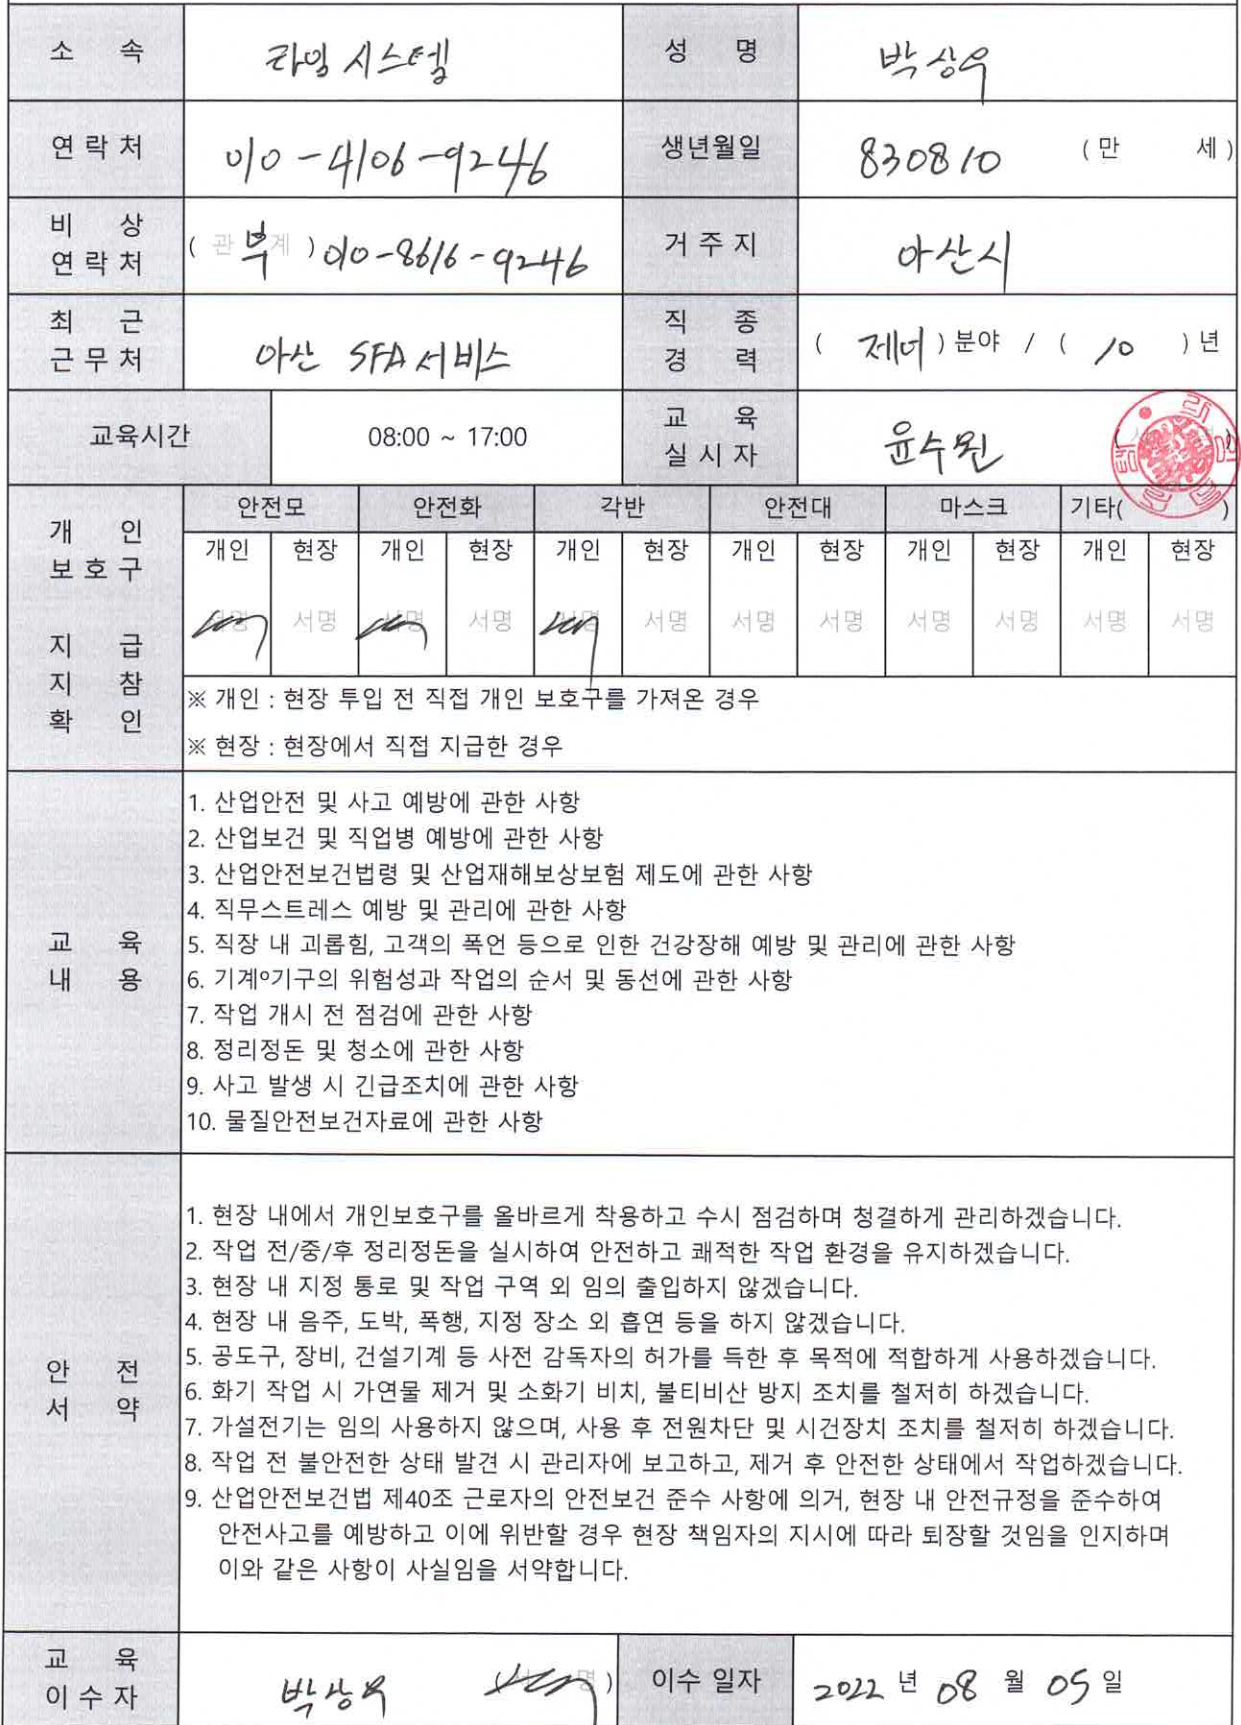 소 속 라임시스템 성 명 박상우
연락처 010-4106-9246 생년월일 830810 (만 세)
비 상
연락처 (관계) 부 010-8616-9246 거주지 아산시
최 근
근무처 아산 SFA 서비스 직 종
경 력 ( 제어 ) 분야 / ( 10 ) 년
교육시간 08:00 ~ 17:00 교 육
실시자 윤수원
개 인
보호구
지 급
지 참
확 인
안전모 안전화 각반 안전대 마스크 기타( )
개인 현장 개인 현장 개인 현장 개인 현장 개인 현장 개인 현장
서명 서명 서명 서명 서명 서명 서명 서명 서명 서명 서명 서명
※ 개인 : 현장 투입 전 직접 개인 보호구를 가져온 경우
※ 현장 : 현장에서 직접 지급한 경우
교 육
내 용
1. 산업안전 및 사고 예방에 관한 사항
2. 산업보건 및 직업병 예방에 관한 사항
3. 산업안전보건법령 및 산업재해보상보험 제도에 관한 사항
4. 직무스트레스 예방 및 관리에 관한 사항
5. 직장 내 괴롭힘, 고객의 폭언 등으로 인한 건강장해 예방 및 관리에 관한 사항
6. 기계º기구의 위험성과 작업의 순서 및 동선에 관한 사항
7. 작업 개시 전 점검에 관한 사항
8. 정리정돈 및 청소에 관한 사항
9. 사고 발생 시 긴급조치에 관한 사항
10. 물질안전보건자료에 관한 사항
안 전
서 약
1. 현장 내에서 개인보호구를 올바르게 착용하고 수시 점검하며 청결하게 관리하겠습니다.
2. 작업 전/중/후 정리정돈을 실시하여 안전하고 쾌적한 작업 환경을 유지하겠습니다.
3. 현장 내 지정 통로 및 작업 구역 외 임의 출입하지 않겠습니다.
4. 현장 내 음주, 도박, 폭행, 지정 장소 외 흡연 등을 하지 않겠습니다.
5. 공도구, 장비, 건설기계 등 사전 감독자의 허가를 득한 후 목적에 적합하게 사용하겠습니다.
6. 화기 작업 시 가연물 제거 및 소화기 비치, 불티비산 방지 조치를 철저히 하겠습니다.
7. 가설전기는 임의 사용하지 않으며, 사용 후 전원차단 및 시건장치 조치를 철저히 하겠습니다.
8. 작업 전 불안전한 상태 발견 시 관리자에 보고하고, 제거 후 안전한 상태에서 작업하겠습니다.
9. 산업안전보건법 제40조 근로자의 안전보건 준수 사항에 의거, 현장 내 안전규정을 준수하여
안전사고를 예방하고 이에 위반할 경우 현장 책임자의 지시에 따라 퇴장할 것임을 인지하며
이와 같은 사항이 사실임을 서약합니다.
교 육
이수자 박상우 (서명) 이수 일자 2022 년 08 월 05 일